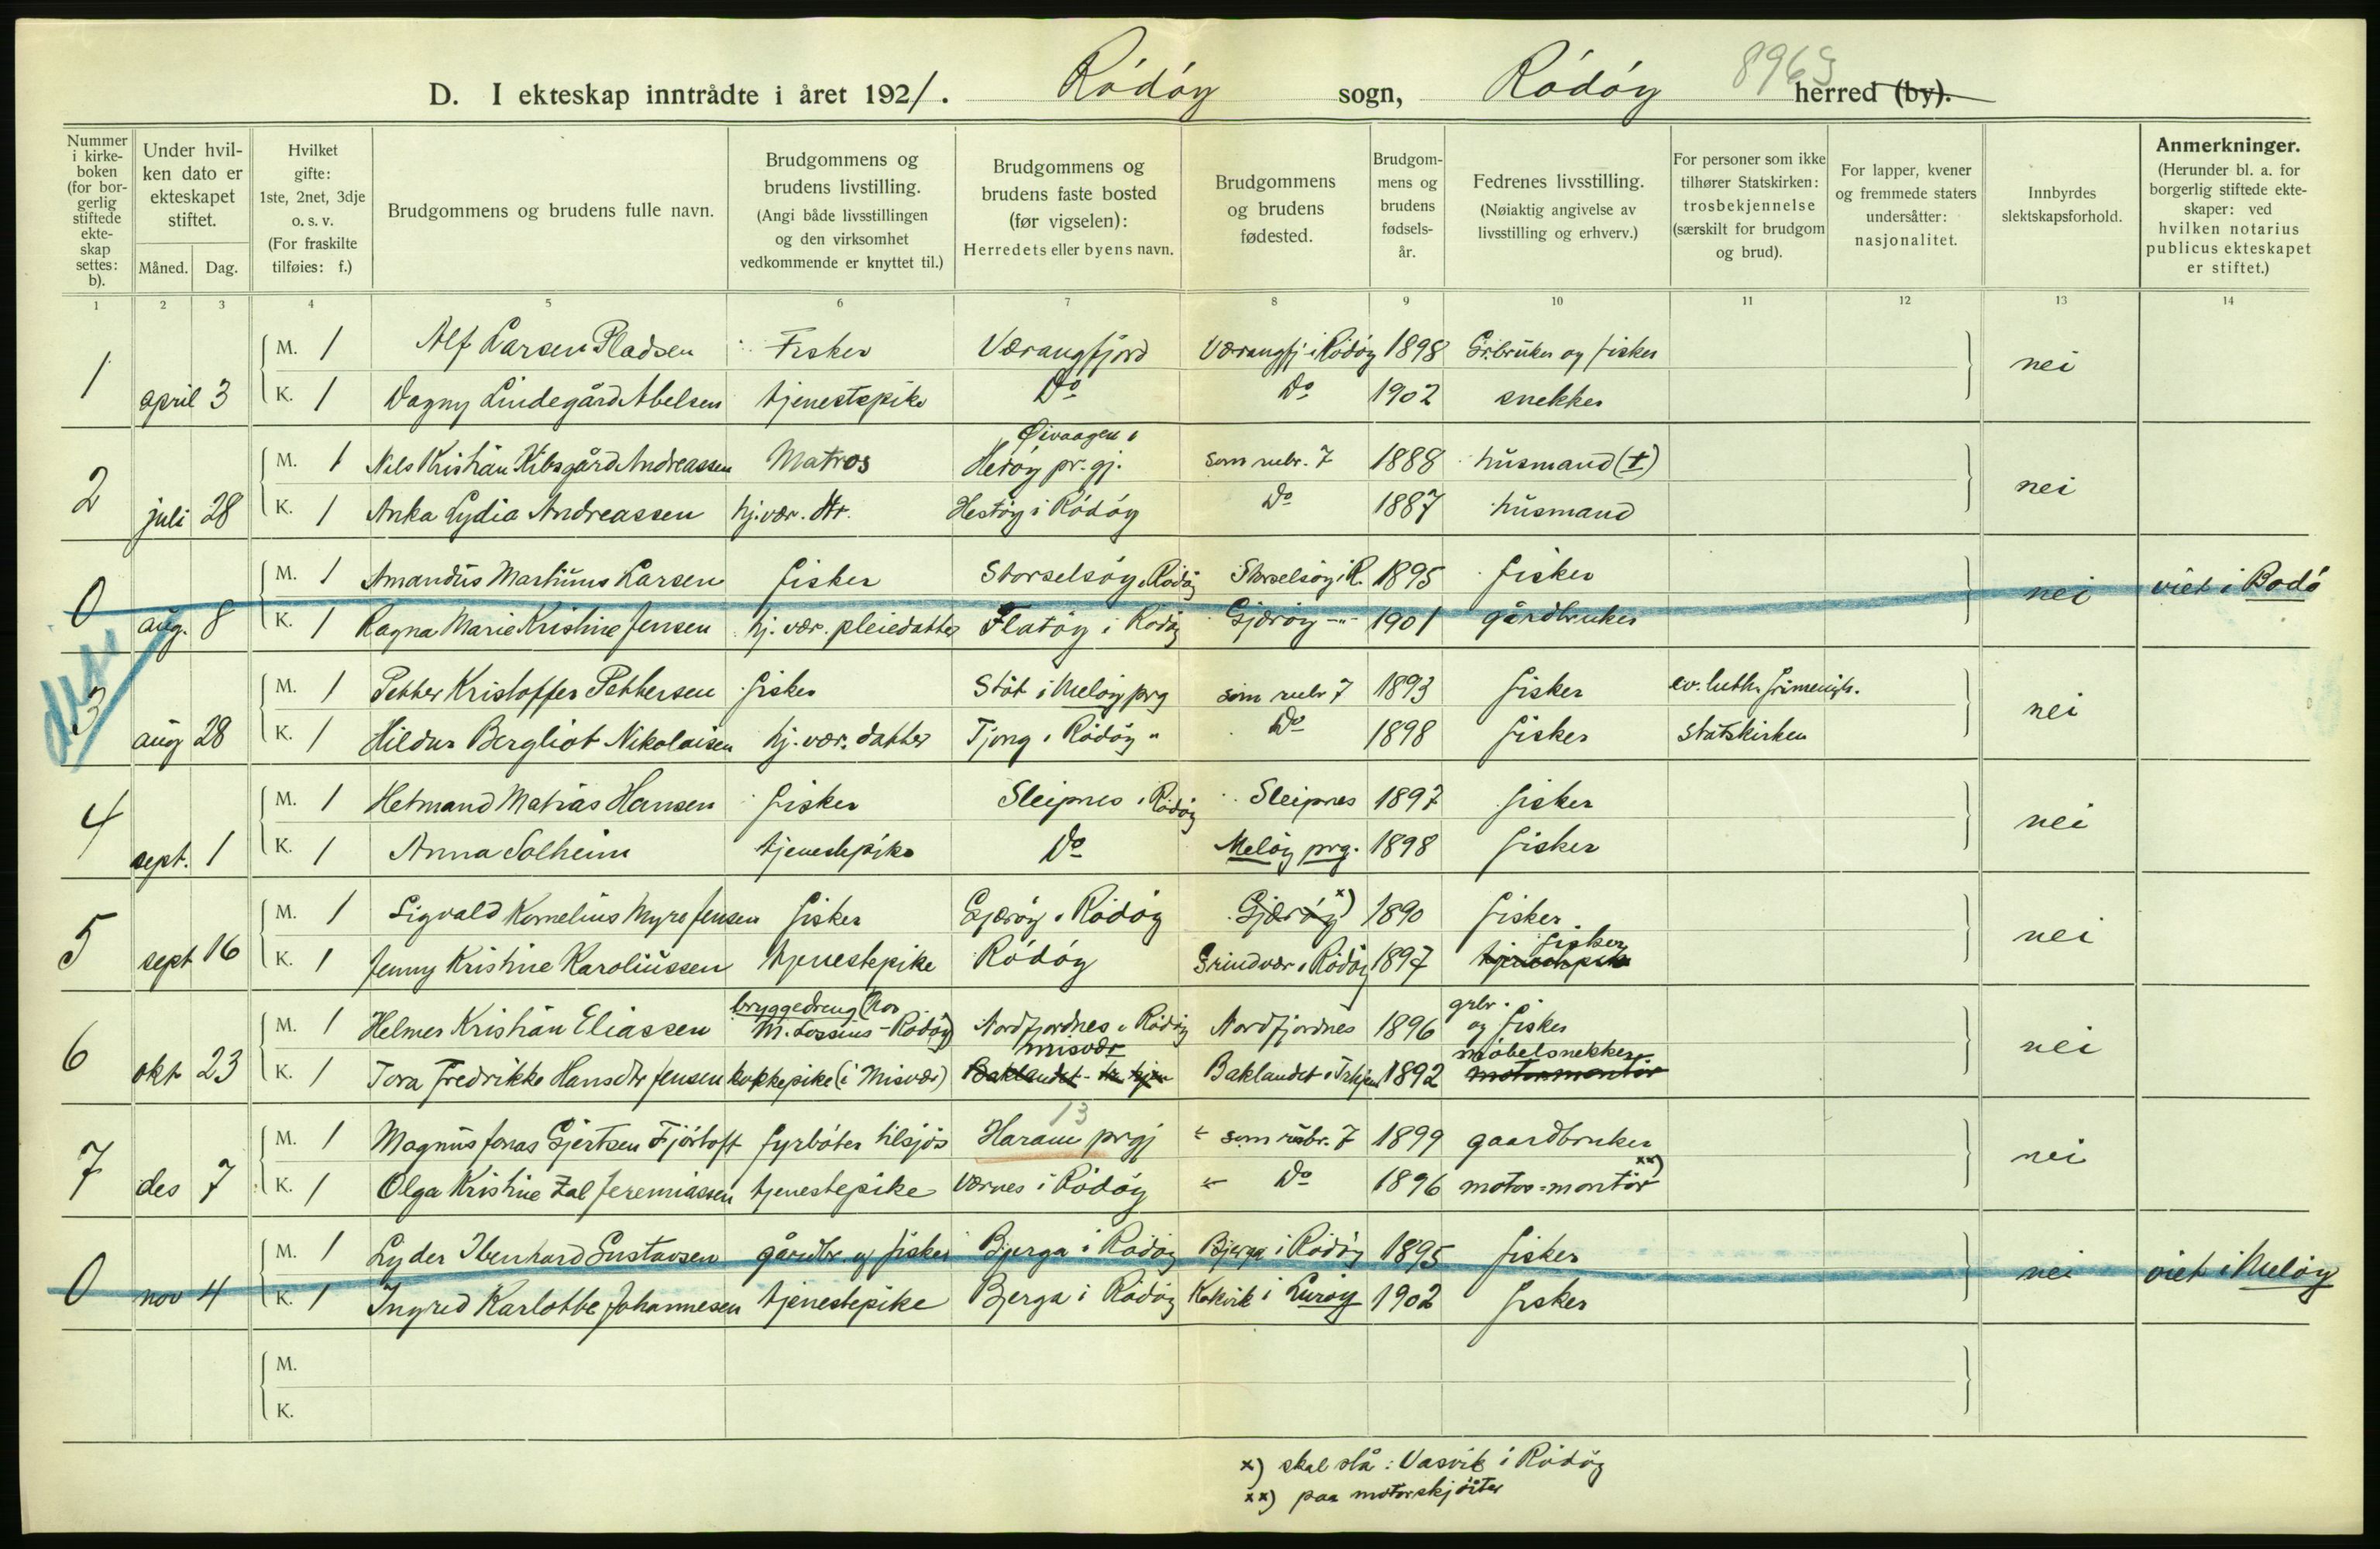 8965
D. I ekteskap inntrådte i året 1921. Rödöy sogn, Rödöy herred (by).
Nummer i kirkeboken (for borgerlig stiftede ekteskap settes: b).
Under hvilken dato er ekteskapet stiftet.
Måned. Dag.
Hvilket gifte: 1ste, 2net, 3dje o. s. v. (For fraskilte tilføies: f.)
Brudgommens og brudens fulle navn.
Brudgommens og brudens livstilling. (Angi både livsstillingen og den virksomhet vedkommende er knyttet til.)
Brudgommens og brudens faste bosted (før vigselen): Herredets eller byens navn.
Brudgommens og brudens fødested.
Brudgommens og brudens fødselsår.
Fedrenes livsstilling. (Nøiaktig angivelse av livsstilling og erhverv.)
For personer som ikke tilhører Statskirken: trosbekjennelse (særskilt for brudgom og brud).
For lapper, kvener og fremmede staters undersåtter: nasjonalitet.
Innbyrdes slektskapsforhold.
Anmerkninger. (Herunder bl. a. for borgerlig stiftede ekteskaper: ved hvilken notarius publicus ekteskapet er stiftet.)
1 2 3 4 5 6 7 8 9 10 11 12 13 14
1 april 3 M. 1 Alf Larsen Pladsen Fisker Værangfjord Værangfj. i Rödöy 1898 Grbruker og fisker nei
K. 1 Dagny Lindegård Abelsen tjenestepike Do Do 1902 snekker
2 juli 28 M. 1 Nils Kristian Kibsgård Andreassen Matros Øivaagen i Heröy pr.gj. som rubr. 7 1888 husmand (+) nei
K. 1 Anka Lydia Andreassen hj.vær. dtr. Hestöy i Rödöy Do 1887 husmand
0 aug. 8 M. 1 Amandus Martinus Larsen fisker Storselsöy i Rödöy Storselsöy i R. 1895 fisker nei viet i Bodö
K. 1 Ragna Marie Kristine Jensen hj. vær. pleiedatter Flatöy i Rödöy Gjeröy -"- 1901 gårdbruker
3 aug 28 M. 1 Petter Kristoffer Pettersen fisker Stöt i Melöy prg som rubr 7 1893 fisker ev. luth. frimenigh. nei
K. 1 Hildur Bergliot Nikolaisen hj. vær. datter Tjong i Rödöy " Do 1898 fisker statskirken
4 sept. 1 M. 1 Hetmand Matias Hansen fisker Sleipnes i Rödöy Sleipnes 1897 fisker nei
K. 1 Anna Solheim tjenestepike Do Melöy prg. 1898 fisker
5 sept 16 M. 1 Sigvald Kornelius Myro Jensen fisker Gjeröy i Rödöy Gjeröy x) 1890 fisker nei
K. 1 Jenny Kristine Karoliussen tjenestepike Rödöy Grindvær i Rödöy 1897 tjenestepike fisker
6 okt 23 M. 1 Helmer Kristian Eliassen bryggedreng (hos M. Lossius - Rödöy) Nordfjordnes i Rödöy Nordfjordnes 1896 grbr. og fisker nei
K. 1 Tora Fredrikke Hansdtr Jensen kokkepike (i Misvær) Baklandet misvær Baklandet i Trhjem 1892 motormontör möbelsnekker
7 des 7 M. 1 Magnus Jonas Gjertsen Fjörtoft fyrböter tilsjös Haram prgj 13 " som rubr. 7 1899 gaardbruker nei
K. 1 Olga Kristine Zal Jeremiassen tjenestepike Værnes i Rödöy " Do 1896 motor=montör xx)
0 nov 4 M. 1 Lyder Ibenhard Gustavsen gårdbr. og fisker Bjerga i Rödöy Bjerga i Rödöy 1895 fisker nei viet i Melöy
K. 1 Ingred Karlotte Johannesen tjenestepike Bjerga i Rödöy Kokvik i Luröy 1902 fisker
M.
K.
x) skal stå: Vasvik i Rödöy
xx) paa motorskjöiter